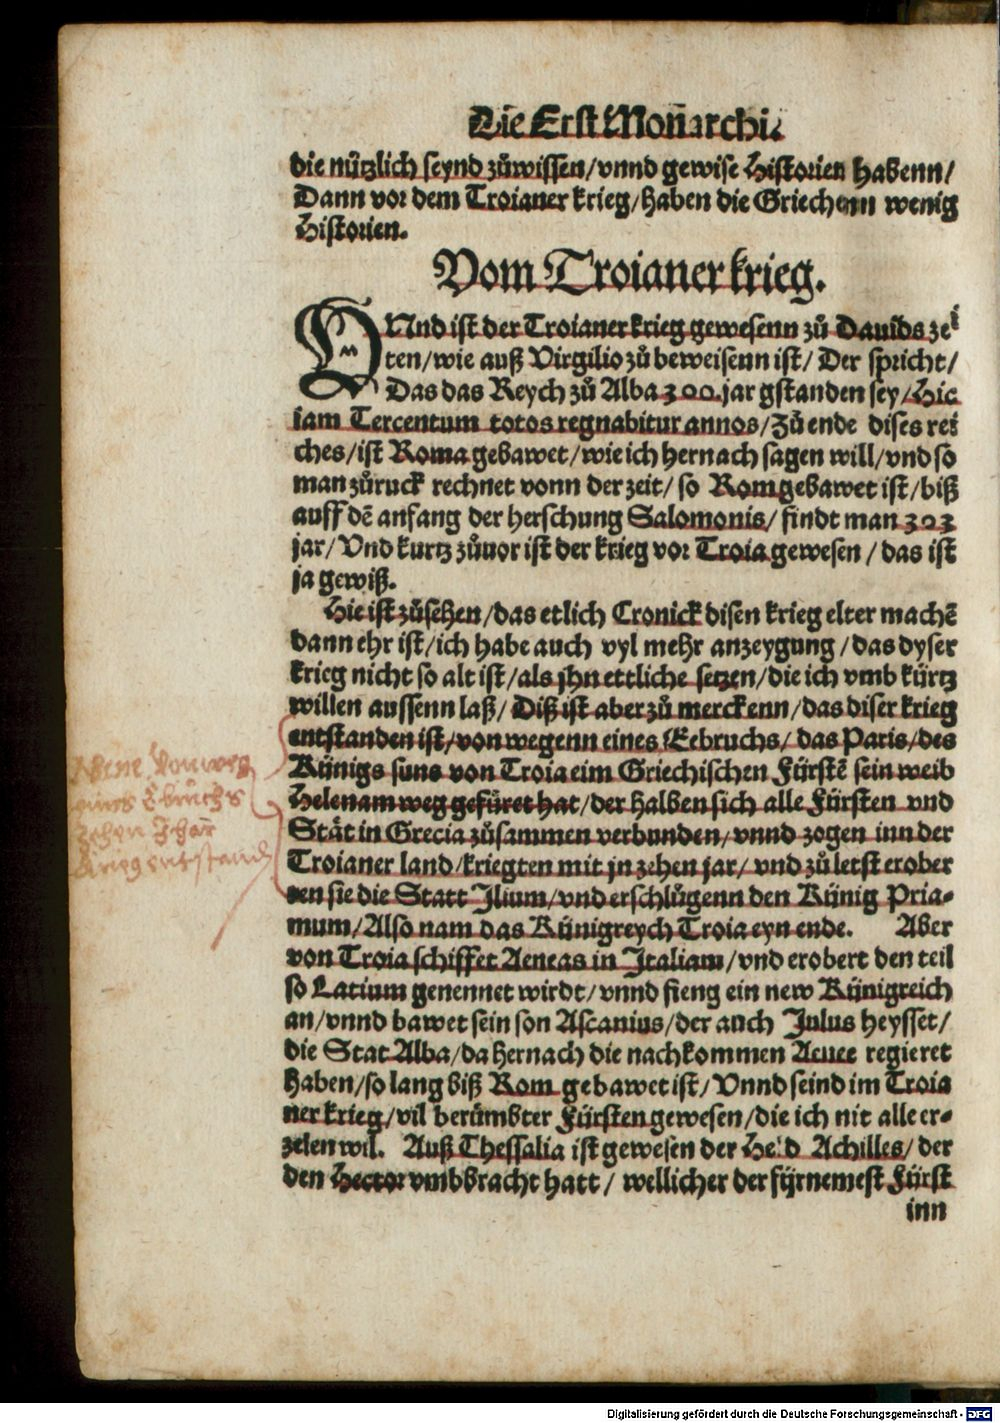 Die Erst Monarchi.
die nützlich seynd zůwissen/vnnd gewise Historien habenn/
Dann vor dem Troianer krieg/haben die Griechenn wenig
Historien.
Vom Troianer krieg.
VNnd ist der Troianer krieg gewesenn zů Dauids zei
ten/wie auß Virgilio zů beweisenn ist/ Der spricht/
Das das Reych zů Alba 300. jar gstanden sey/Hic
iam Tercentum totos regnabitur annos/Zů ende dises rei
ches/ist Roma gebawet/wie ich hernach sagen will/vnd so
man zůruck rechnet vonn der zeit/ so Rom gebawet ist/biß
auff dē anfang der herschung Salomonis/ findt man 303
jar/ Vnd kurtz zůuor ist der krieg vor Troia gewesen / das ist
ja gewiß.
Hie ist zůsehen/das etlich Cronick disen krieg elter machē
dann ehr ist/ich habe auch vyl mehr anzeygung /das dyser
krieg nicht so alt ist/als jhn ettliche setzen/die ich vmb kürtz
willen aussenn laß/ Diß ist aber zů merckenn/das diser krieg
entstanden ist/von wegenn eines Eebruchs/ das Paris/des
Künigs suns von Troia eim Griechischen Fürstē sein weib
Helenam weg gefüret hat/der halben sich alle Fürsten vnd
Stät in Grecia zůsammen verbunden/vnnd zogen inn der
Troianer land/kriegten mit jn zehen jar/ vnd zů letst erober
ten sie die Statt Ilium/vnd erschlůgenn den Künig Pria-
mum/Also nam das Künigreych Troia eyn ende. Aber
von Troia schiffet Aeneas in Italiam/vnd erobert den teil
so Latium genennet wirdt/vnnd fieng ein new Künigreich
an/vnnd bawet sein son Ascanius/der auch Julus heysset/
die Stat Alba/da hernach die nachkommen Aenee regieret
haben/so lang biß Rom gebawet ist/ Vnnd seind im Troia
ner krieg/vil berümbter Fürsten gewesen/die ich nit alle er-
zelen wil. Auß Thessalia ist gewesen der Held Achilles/ der
den Hector vmbbracht hatt/ wellicher der fürnemest Fürst
inn
von weg
eines Ebruchs
zehen Jhar
krieg entstand
Digitalisierung gefördert durch die Deutsche Forschungsgemeinschaft - DFG